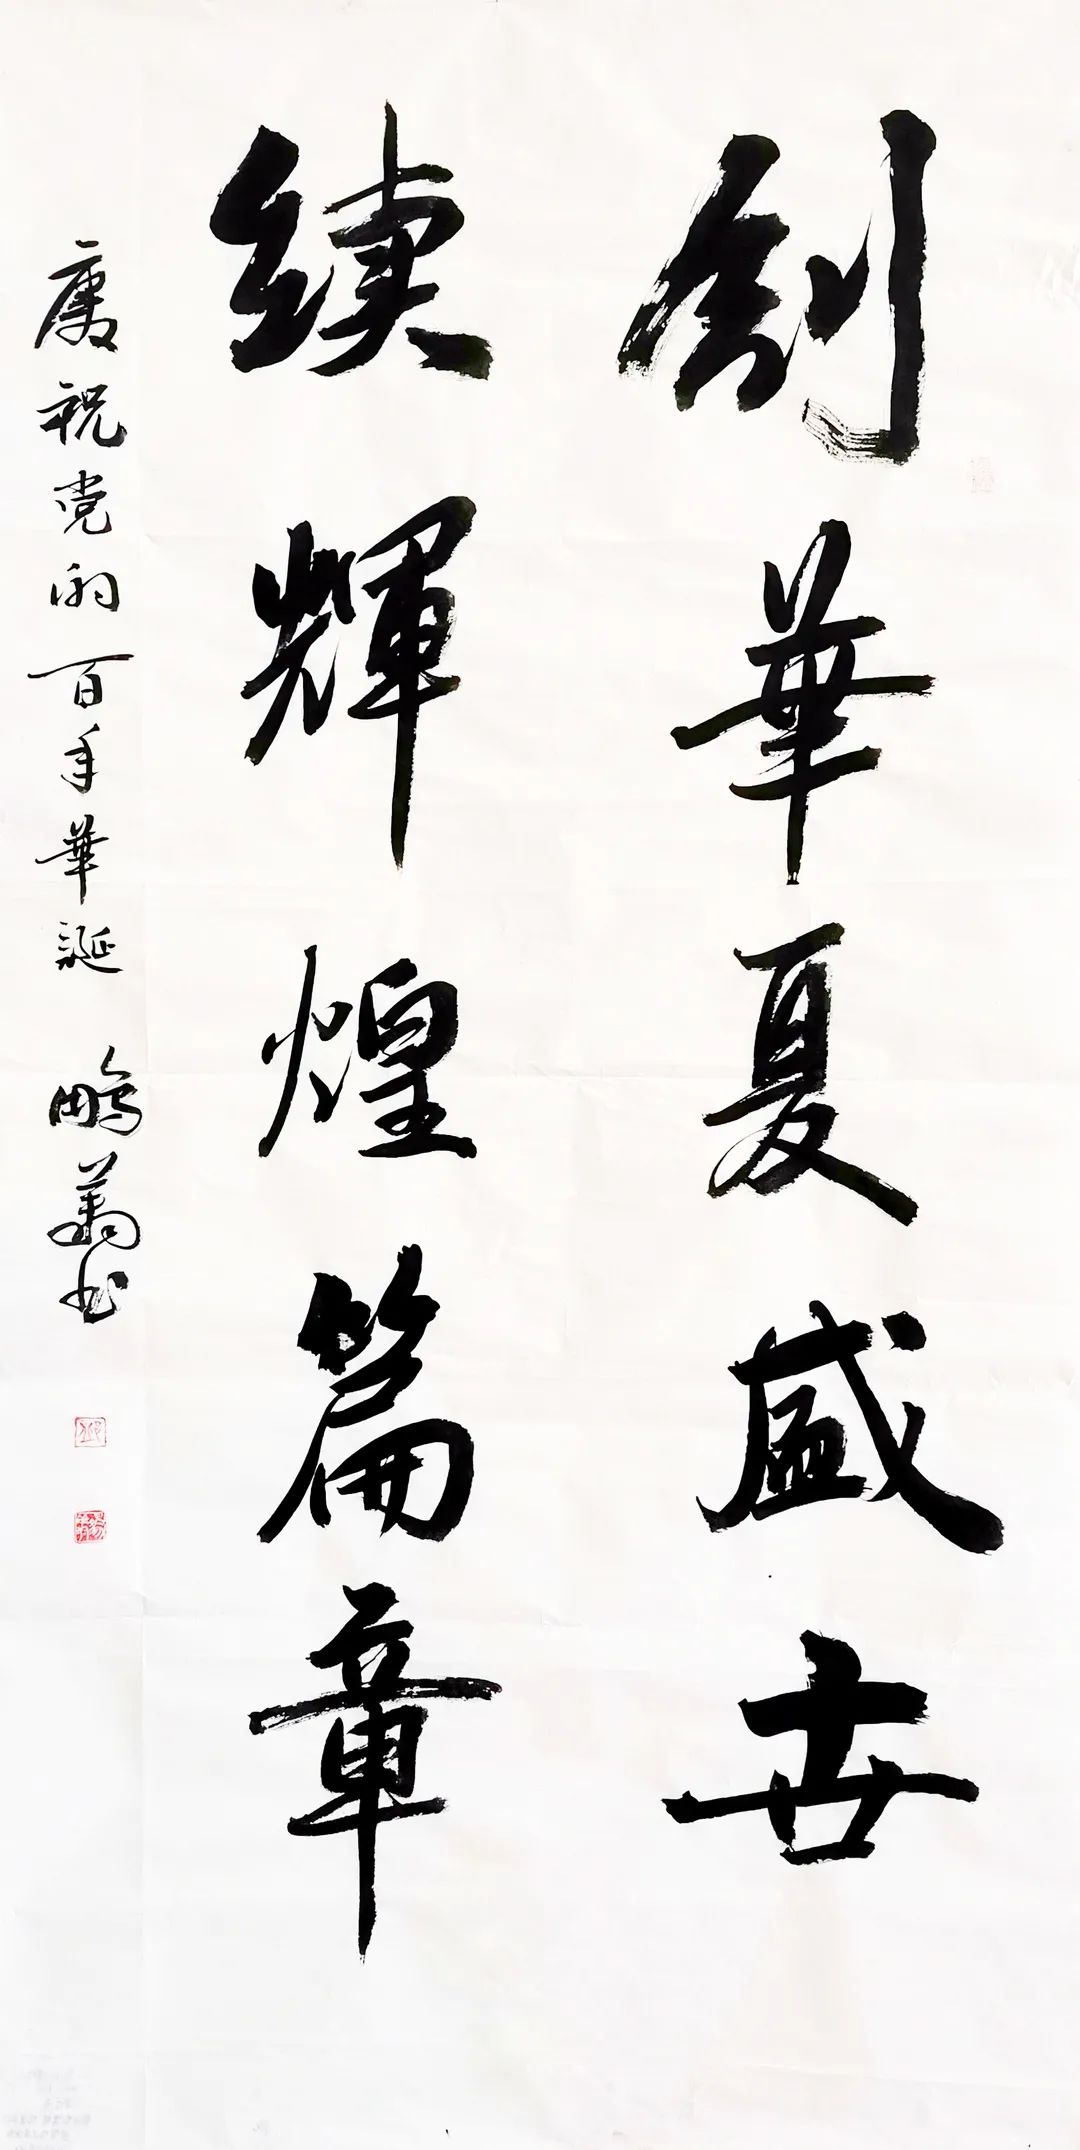 創華夏盛世
续輝煌篇章
慶祝党的百年華誕 鵬万书